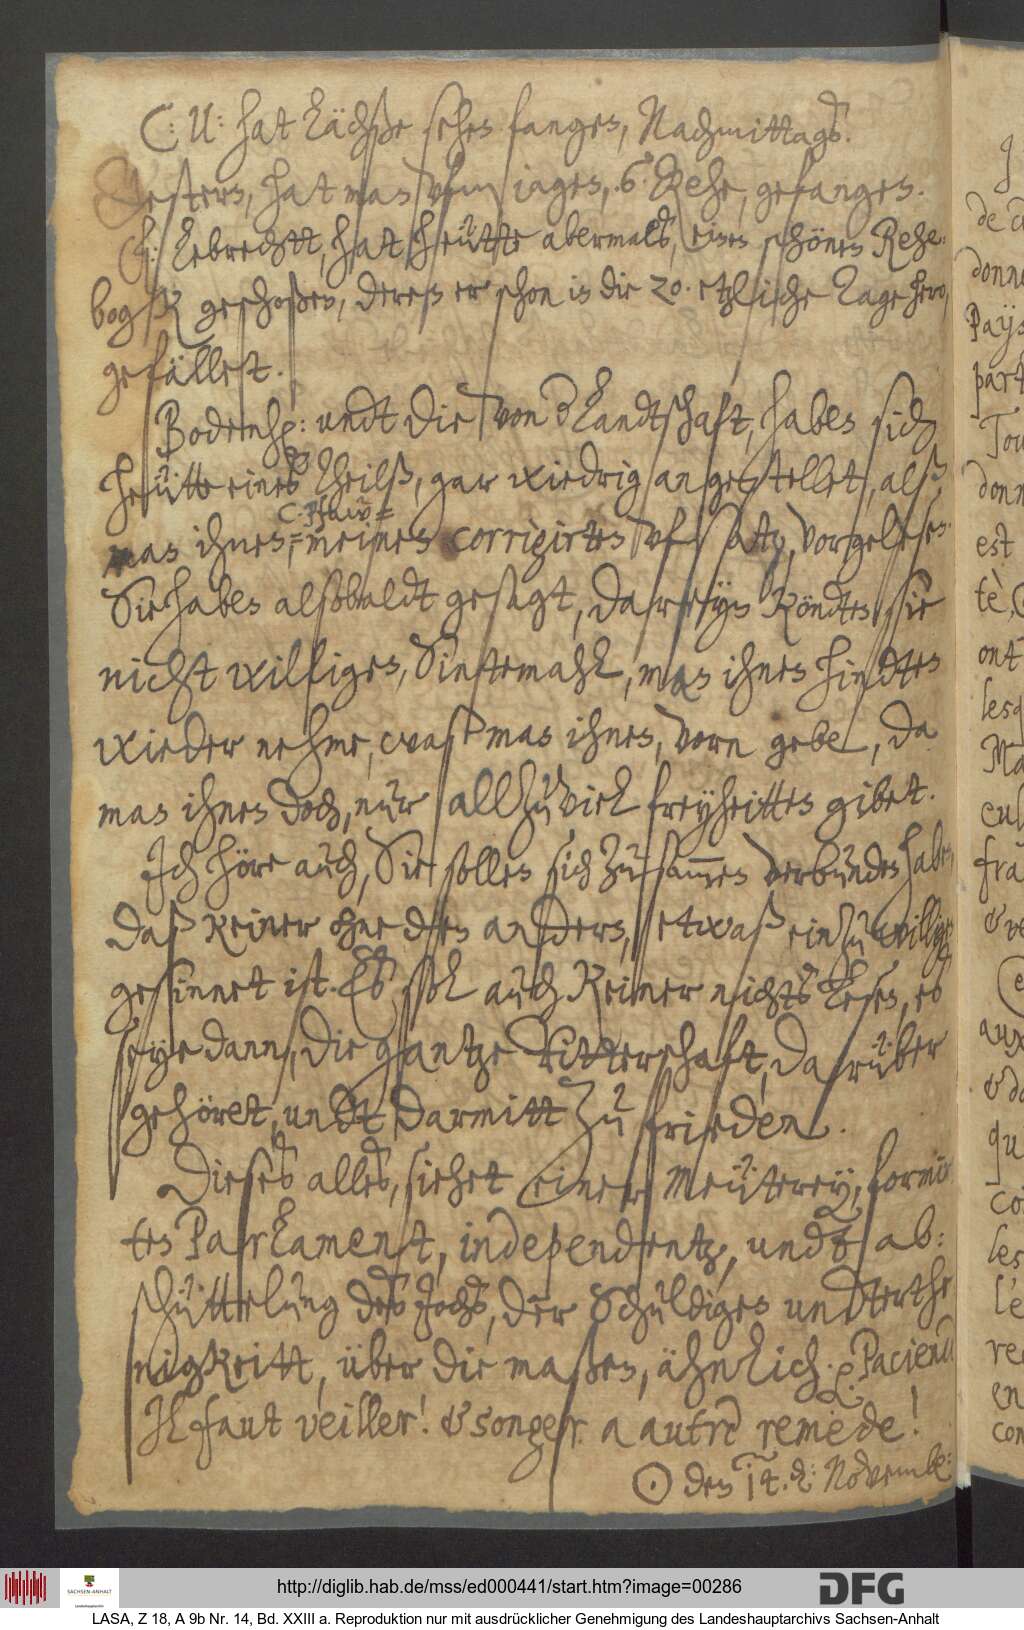 C: U: hat Lächße sehen fangen, Nachmittags.
Gestern, hat man vfm iagen, 6 Rehe, gefangen.
Lebrechtt, hat heütte abermalß, einen schönen Rehe¬
bogk geschoßen, deren er schon in die 20. etzliche Tage hero,
gefället.
Bodenh: undt die von der Landtschaft, haben sich
heütte eines theilß, gar wiedrig angestellet, alß
C. Pfaw¬
man ihnen, meinen corrigirten vfsatz, vorgelesen.
Sie haben alsobaldt gesagt, darein köndten sie
nicht willigen, Sintemahl, man ihnen hindten
wieder nehme, waß man ihnen, vorn gebe, da
man ihnen doch, nur allzuviel freyheitten gibet.
Ich höre auch, Sie sollen sich zusammen verbunden haben,
daß keiner ohne den andern, etwaß einzuwilligen
gesinnet ist. Es soll auch keiner nichts lesen, es
seye dann, die gantze Ritterschaft, darüber
gehöret, undt darmitt zu frieden.
Dieses alles, siehet einer Meüterey, formir
ten Parlament, independentz, undt ab¬
schüttelung des Jochs, der Schuldigen undterthe
nigkeitt, über die maßen, ähnlich. Pacienc
Il faut veiller! & songer. a autre remede!
☉ den 14. d: Novembr:
http://diglib.hab.de/mss/ed000441/start.htm?image=00286
DFG
SACHSEN-ANHALT
LASA, Z 18, A 9b Nr. 14, Bd. XXIII a. Reproduktion nur mit ausdrücklicher Genehmigung des Landeshauptarchivs Sachsen-Anhalt